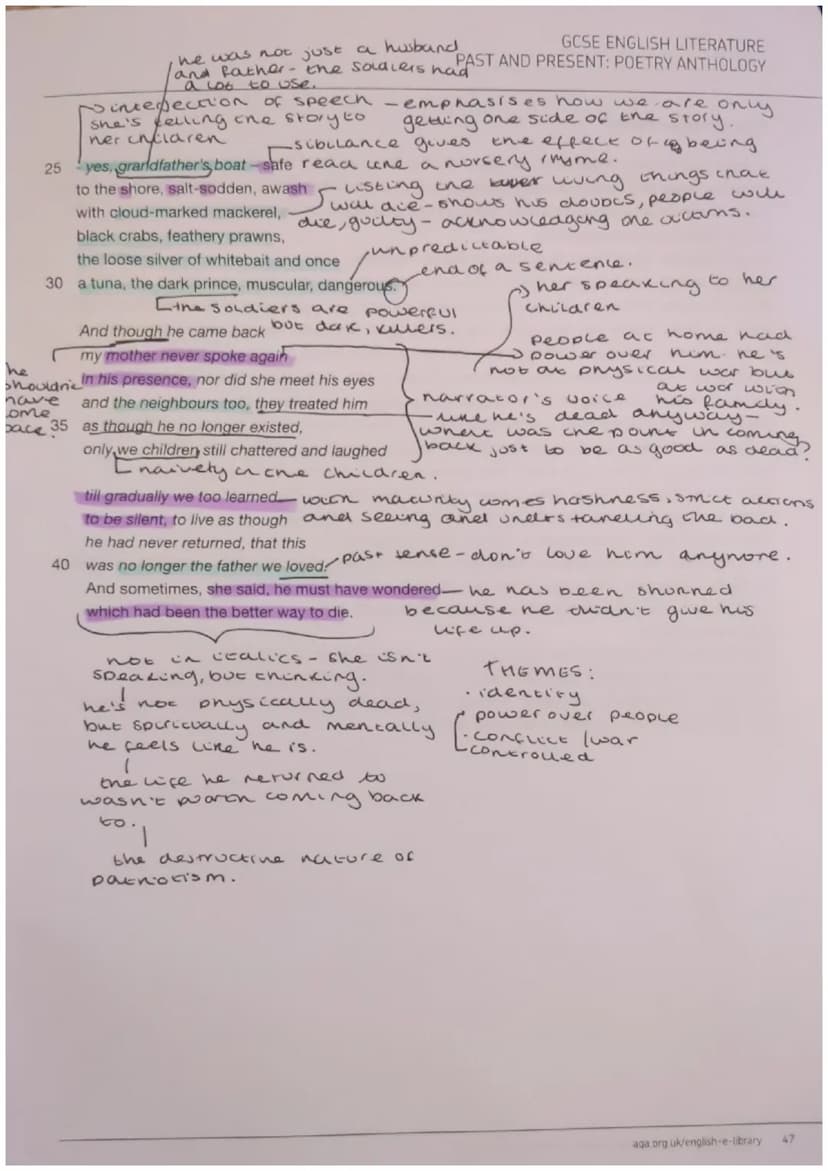 GCSE ENGLISH LITERATURE
PAST AND PRESENT: POETRY ANTHOLOGY
he was not just a husband
and father - the soldiers had
a lot to use.
interjection of speech
she's telling the story to
her children
- emphasises how we are only
getting one side of the story.
sibilance gives the effect of being
read like a nursery rhyme.
25 - yes, grandfather's boat – safe
to the shore, salt-sodden, awash
with cloud-marked mackerel,
black crabs, feathery prawns,
the loose silver of whitebait and once
30 a tuna, the dark prince, muscular, dangerous.
listing the living things that
will die - shows his doubts, people will
die, guilty - acknowledging the victims.
unpredictable
end of a sentence.
the soldiers are powerful
but dark, killers.
her speaking to her
children
And though he came back
my mother never spoke again
in his presence, nor did she meet his eyes
and the neighbours too, they treated him
35 as though he no longer existed,
only we children still chattered and laughed
he
shouldn't
have
come
back?
people at home had
power over him. he's
not at physical war but
at war with
his family.
narrator's voice
like he's dead anyway -
what was the point in coming
back just to be as good as dead?
naivety in the children.
till gradually we too learned
to be silent, to live as though
he had never returned, that this
40 was no longer the father we loved.
And sometimes, she said, he must have wondered
which had been the better way to die.
with maturity comes harshness, strict actions
and seeing and understanding the bad.
past tense - don't love him anymore.
he has been shunned
because he didn't give his
life up.
not in italics - she isn't
speaking, but thinking.
he's not physically dead,
but spiritually and mentally
he feels like he is.
the life he returned to
wasn't worth coming back
to.
the destructive nature of
patriotism.
THEMES:
· identity
· power over people
· conflict / war
controlled
aqa.org.uk/english-e-library 47